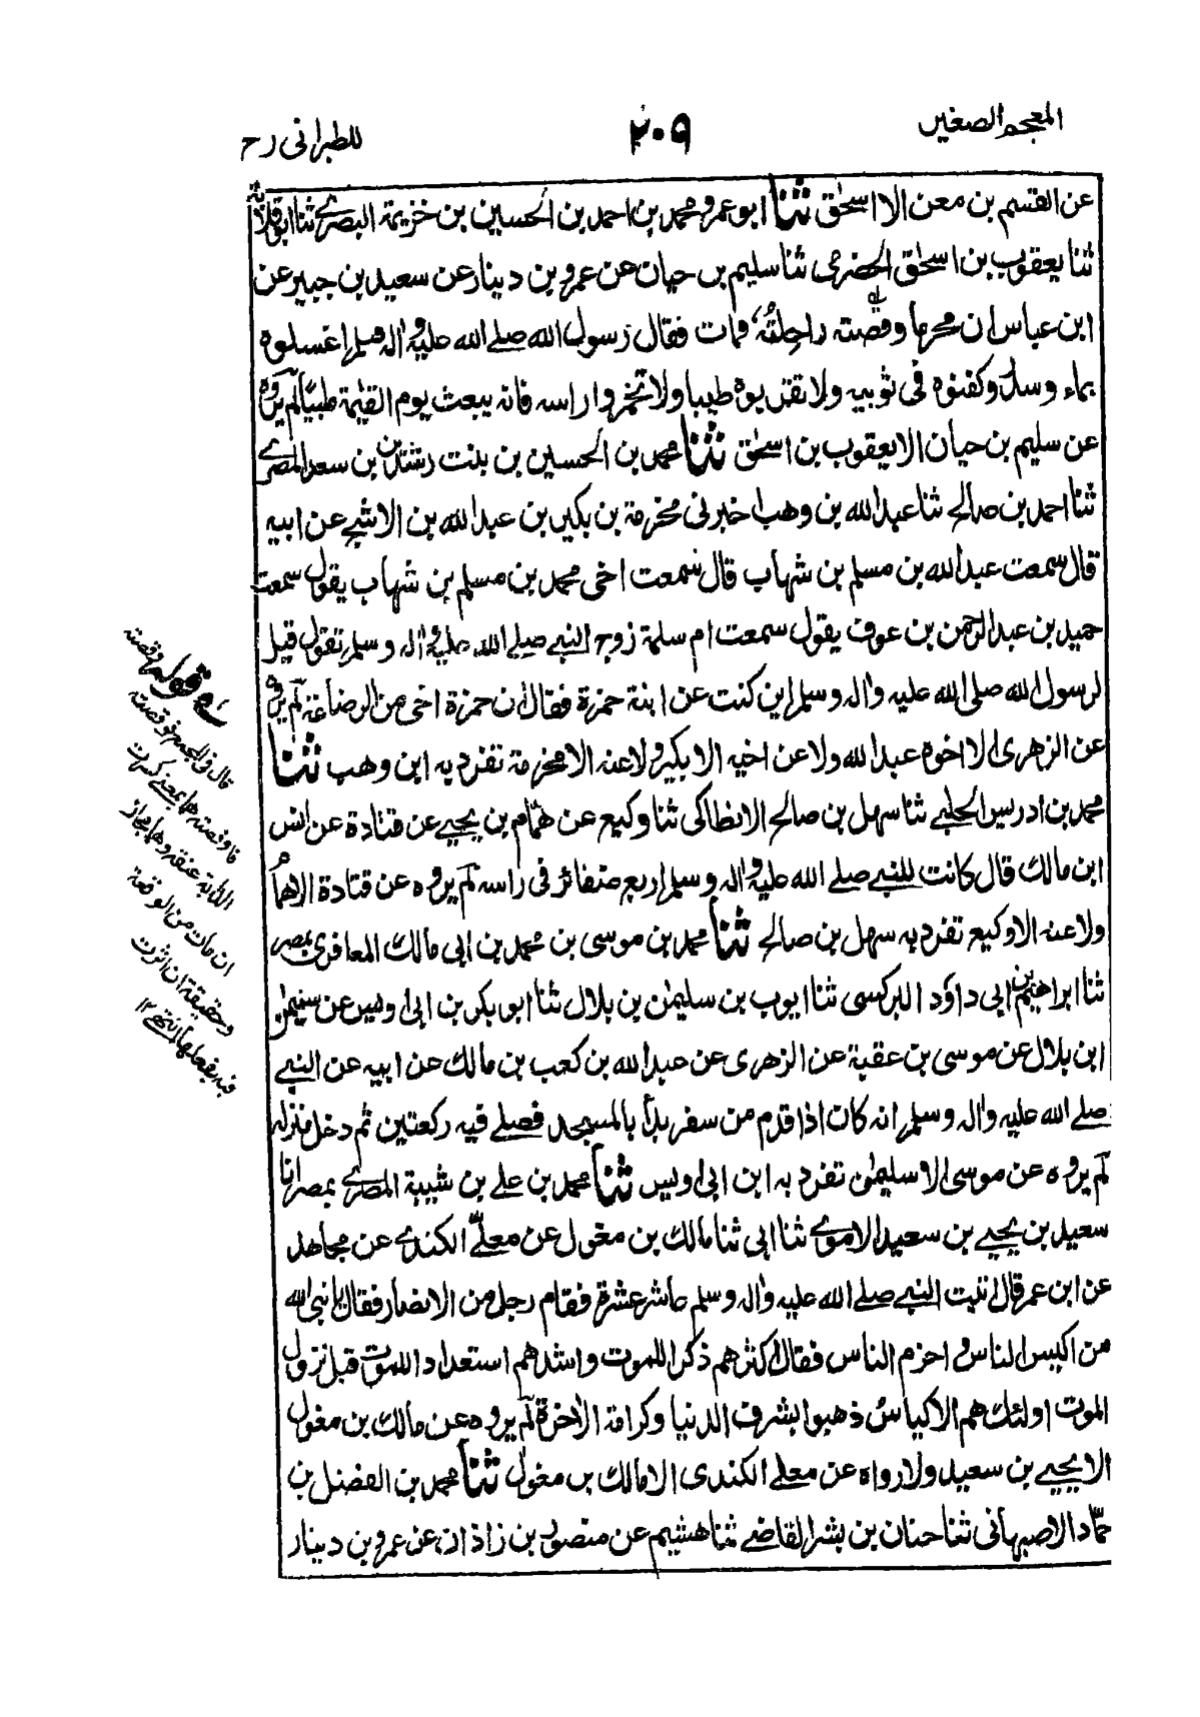 المعجم الصغير
٢٠٩
للطبرانى رح
عن القسم بن معن الا اسحٰق ثنا ابو عمرو محمد بن احمد بن الحسين بن خزيمة البصرے ثنا ابو قلابة
ثنا يعقوب بن اسحٰق الحضرمى ثنا سليم بن حيان عن عمرو بن دينار عن سعيد بن جبير عن
ابن عباس ان محرما وقصته راحلتُه، فمات فقال رسول الله صلے الله عليه واٰله وسلم اغسلوه
بماء وسدر وكفنوه فى ثوبيه ولا تقربوه طيبا ولا تخمروا راسه فانه يبعث يوم القيٰمة ملبيًا لم يروه
عن سليم بن حيان الا يعقوب بن اسحٰق ثنا محمد بن الحسين بن بنت رشدين بن سعد المصرے
ثنا احمد بن صالح ثنا عبد الله بن وهب اخبرنى مخرمة بن بكير بن عبد الله بن الاشج عن ابيه
قال سمعت عبد الله بن مسلم بن شهاب قال سمعت اخى محمد بن مسلم بن شهاب يقول سمعت
حميد بن عبد الرحمن بن عوف يقول سمعت ام سلمة زوج النبے صلے الله عليه واٰله وسلم تقول قيل
لرسول الله صلى الله عليه واٰله وسلم اين كنت عن ابنة حمزة فقال ان حمزة اخى من الرضاعة لم يروه
عن الزهرى الا اخوه عبد الله ولا عن اخيه الا بكير ولا عنه الا مخرمة تفرد به ابن وهب ثنا
محمد بن ادريس الحلبے ثنا سهل بن صالح الانطاكى ثنا وكيع عن همّام بن يحيے عن قتادة عن انس
ابن مالك قال كانت للنبے صلے الله عليه واٰله وسلم اربع ضفائر فى راسه لم يروه عن قتادة الا همامٌ
ولا عنه الا وكيع تفرد به سهل بن صالح ثنا محمد بن موسى بن محمد بن ابى مالك المعافرى بمصر
ثنا ابراهيم بن ابى داؤد البرلسى ثنا ايوب بن سليمٰن بن بلال ثنا ابو بكر بن ابى اويس عن سليمٰن
ابن بلال عن موسى بن عقبة عن الزهرى عن عبد الله بن كعب بن مالك عن ابيه عن النبے
صلے الله عليه واٰله وسلم انه كان اذا قدم من سفر بدأ بالمسجد فصلے فيه ركعتين ثم دخل منزله
لم يروه عن موسى الا سليمٰن تفرد به ابن ابى اويس ثنا محمد بن على بن شيبة المصرے بمصر انا
سعيد بن يحيے بن سعيد الاموے ثنا ابى ثنا مالك بن مغول عن معلّے الكندے عن مجاهد
عن ابن عمر قال اتيت النبے صلے الله عليه واٰله وسلم عاشر عشرة فقام رجل من الانصار فقال يا نبى الله
من اكيس الناس و احزم الناس فقال اكثرهم ذكرا للموت و اشدهم استعدادا للموت قبل نزول
الموت اولئك هم الاكياس ذهبوا بشرف الدنيا وكرامة الاخرة لم يروه عن مالك بن مغول
الا يحيے بن سعيد ولا رواه عن معلے الكندى الا مالك بن مغول ثنا محمد بن الفضل بن
حمّاد الاصبهانى ثنا حنان بن بشر القاضے ثنا هشيم عن منصور بن زاذان عن عمرو بن دينار
له قوله وقصته
قال فى المجمع فوقصته
فاوقصته هما بمعنے كسرت
الدابة عنقه وهما مجاز
ان مات من الوقعة
وحقيقة ان اثرت
فيه بفعلها انتهے ١٢